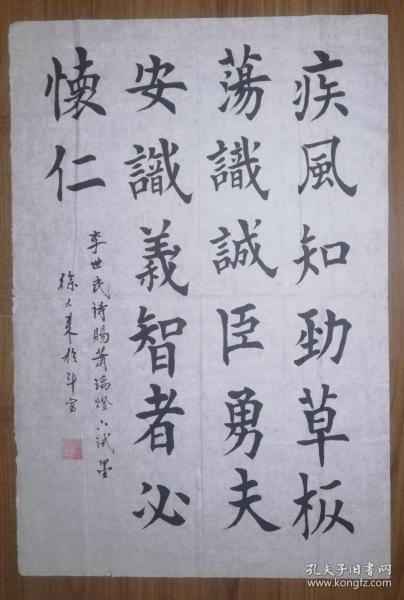 疾風知勁草板
蕩識誠臣勇夫
安識義智者必
懷仁
李世民诗賜萧瑀燈下试墨
徐大来於斗室
孔夫子旧书网
www.kongfz.com